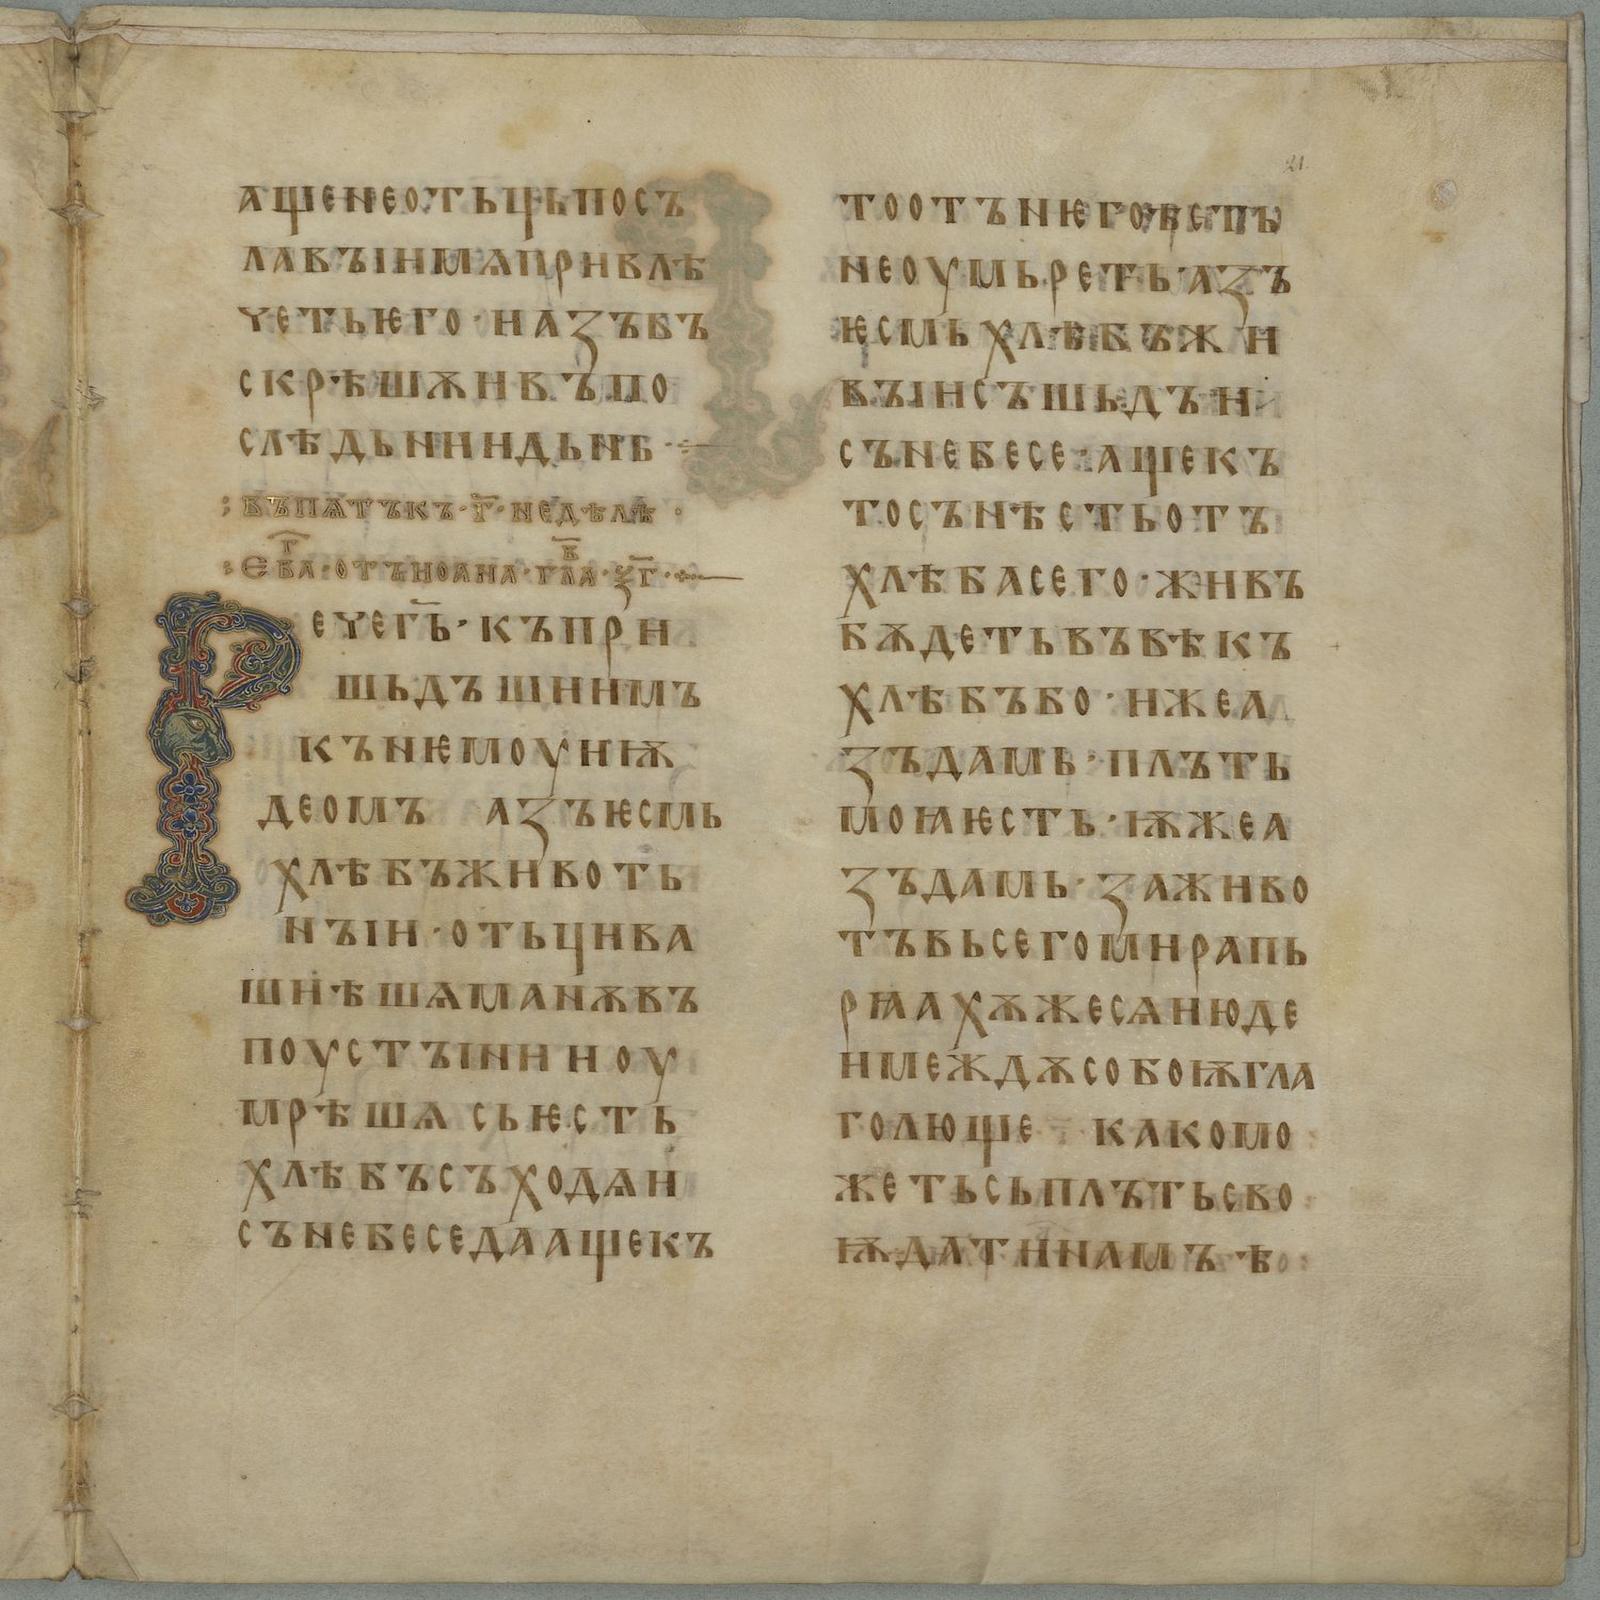 21
ащенеотьцьпосъ
лавъінмѧпривлѣ
четьѥго·иазъвъ
скрѣшѫивъпо
слѣдьниидьнь·
:въпѧтъкъ·г҃·недѣлѣ·
:Єва г·отъиоана·гла в҃·ѯг·
Речегь·къпри
шьдъшиимъ
кънѥмоуиѭ
деомъ азъѥсмь
хлѣбъживоть
нъіи·отьцива
шиѣшѧманѫвъ
поустъіниииоу
мрѣшѧсьѥсть
хлѣбъсъходѧи
сънебеседаащекъ
тоотънѥго
неоумьретьазъ
ѥсмьхлѣбъжи
въіисъшьдъи
сънебесе·ащекъ
тосънѣстьотъ
хлѣбасего·живъ
бѫдетьвъвѣкъ
хлѣбъбо·ижеа
зъдамь·плъть
моꙗѥсть·ѭжеа
зъдамь·заживо
тъвьсегомирапь
рꙗахѫжесѧиюде
имеждѫсобоѭгла
голюще какомо
жетьсьплътьсво
ѭдатинамъѣ